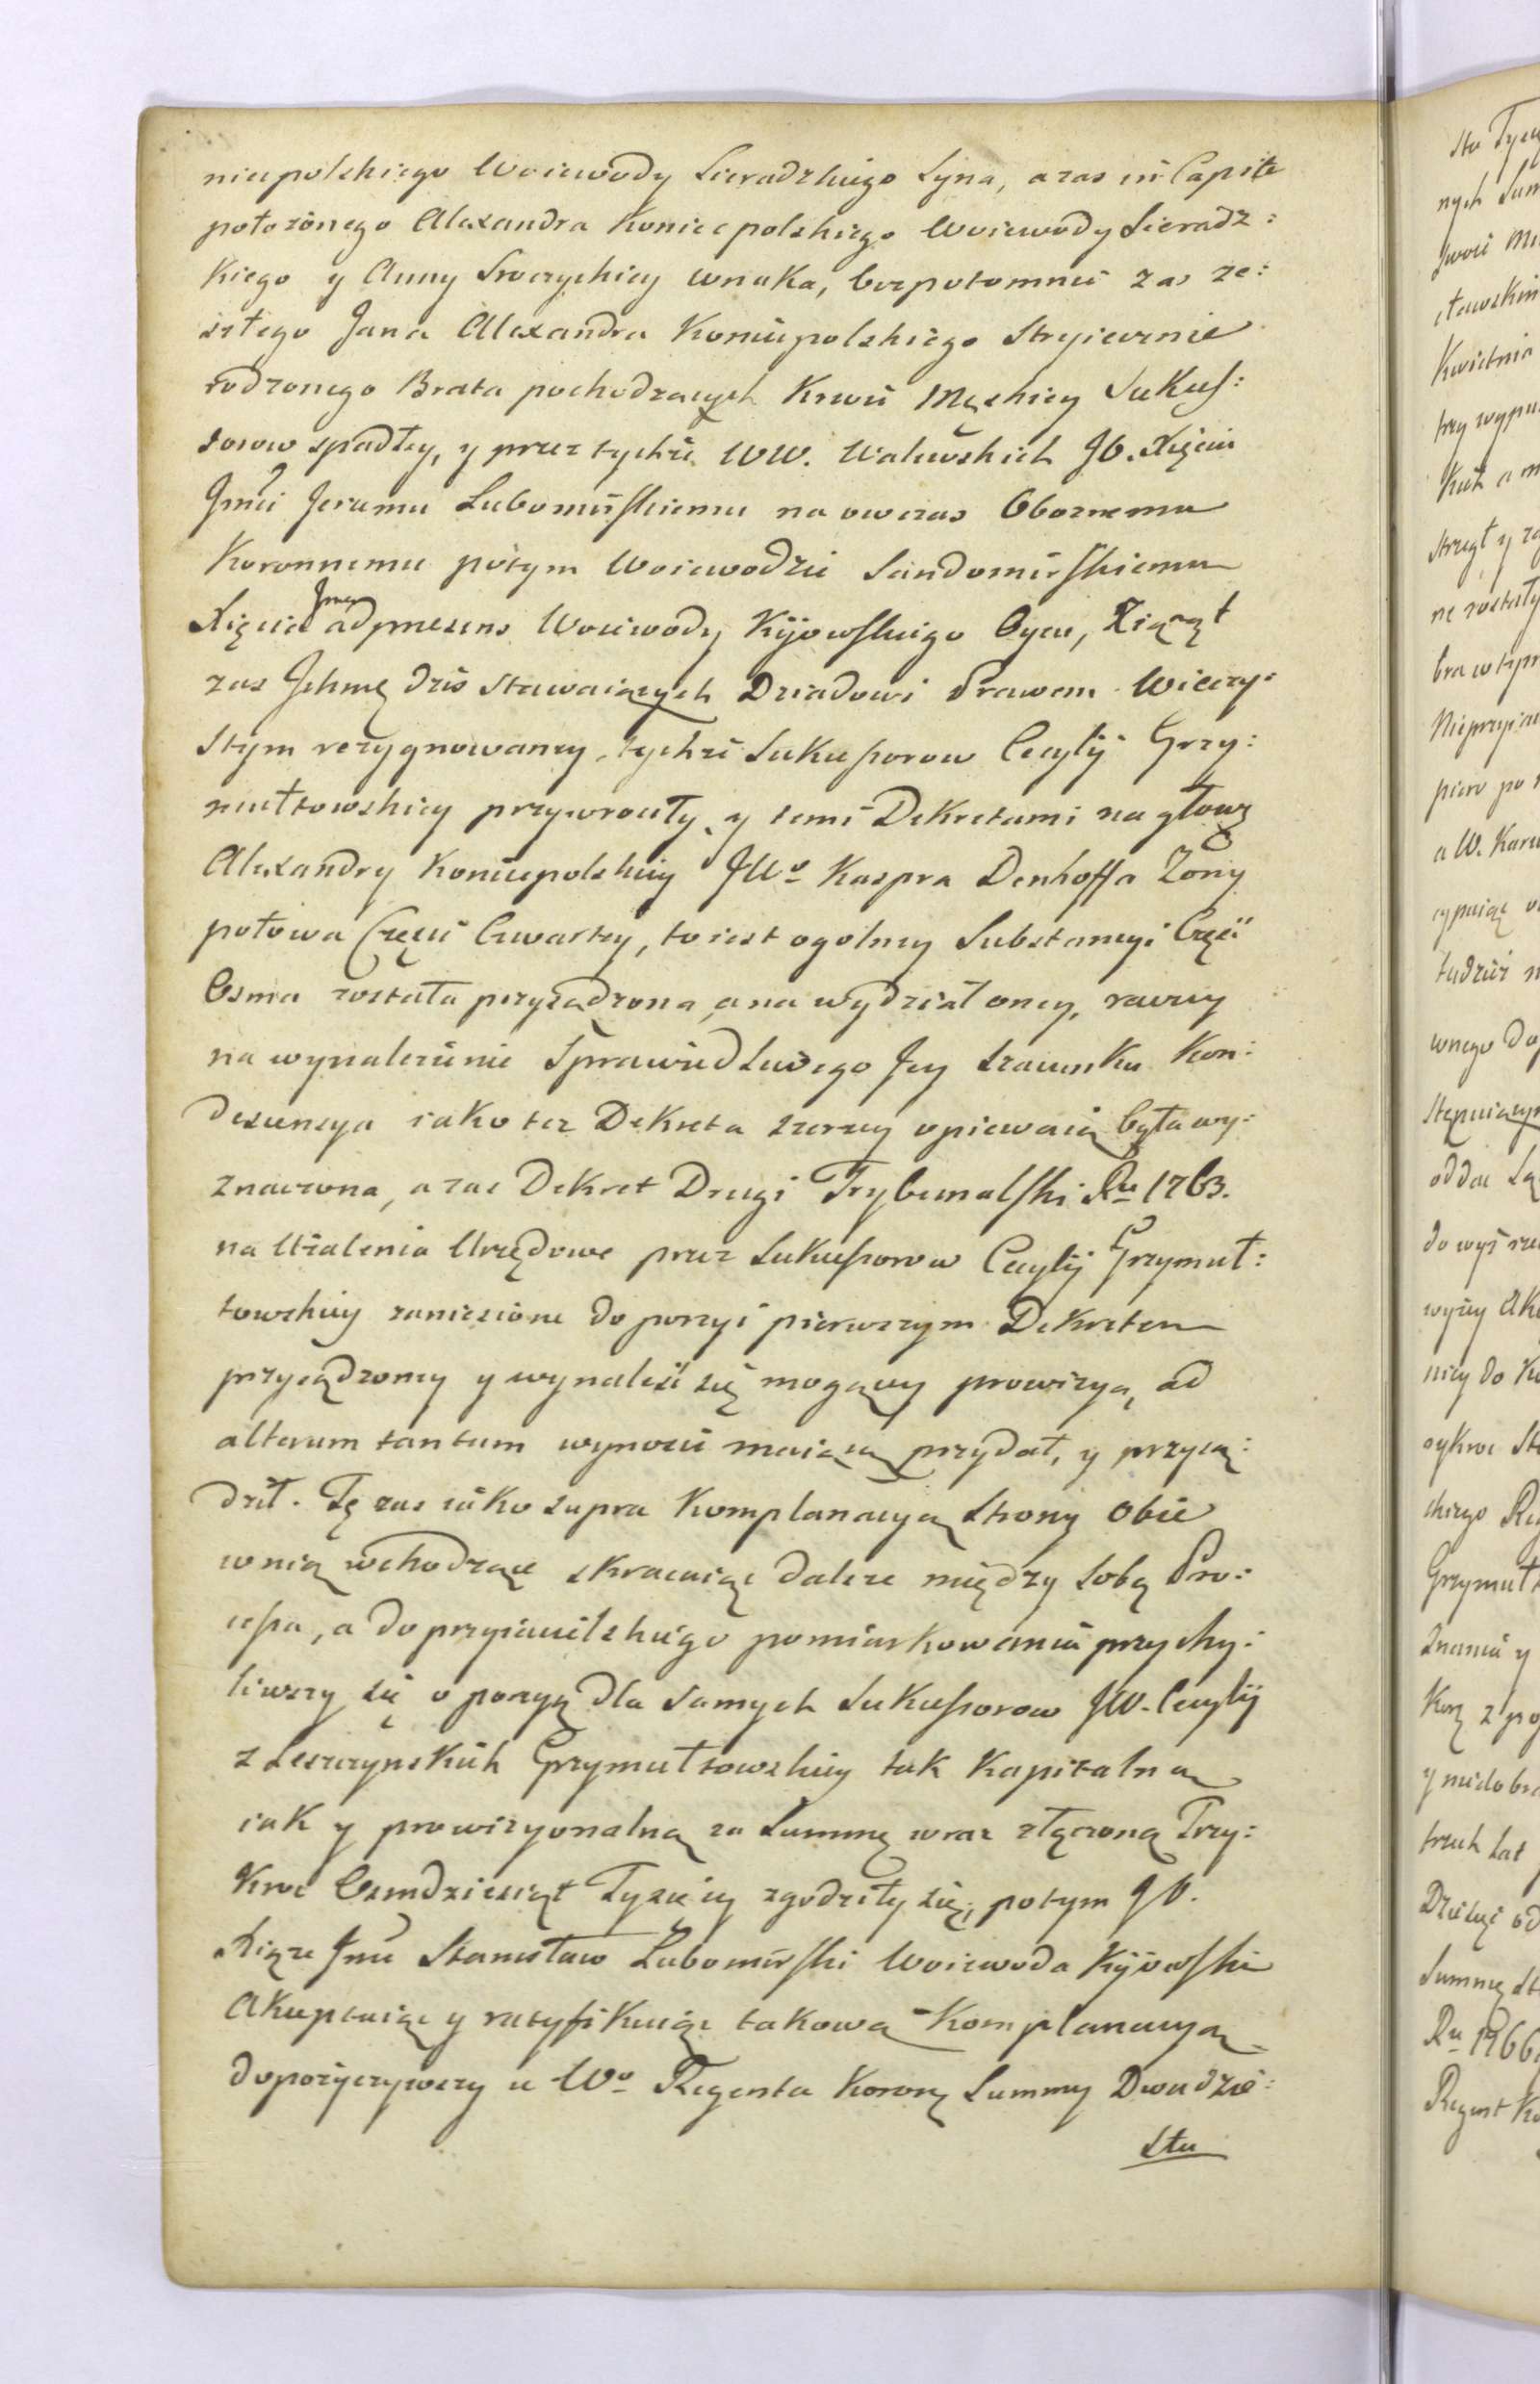 niepolskiego Woiewody Sieradzkiego Syna, a zas in Capite
położonego Alexandra Koniecpolskiego Woiewody Sieradz:
kiego y Anny Sroczyckiey wnuka, bezpotomnie zas ze:
szłego Jana Alexandra Koniecpolskiego Stryiecznie
rodzonego Brata pochodzących Krwi Męskiey Sukceſ:
sorow spadłey, y przez tychże WW. Walewskich JO. Xięciu
Jmci Jerzemu Lubomirſkiemu na owczas Oboznemu
Koronnemu potym Woiewodzie Sandomirſkiemu
Xięcia Jmci ad praesens Woiewody Kijowſkiego Oycu, Xiążąt
zas Jchmę dzis stawaiących Dziadowi Prawem Wieczy:
stym rezygnowaney, tychże Sukceſsorow Cecylij Grzy:
mułtowskiey przywrociły, y temi Dekretami na głowę
Alexandry Koniecpolskiey JWo Kaspra Denhoffa Zony
połowa Części Czwartey, to iest ogolney Substancyi Częsc
Osma została przysądzona, a na wydział oney, raczey
na wynalezienie Sprawiedliwego Jey szacunku Kon:
descensya iako też Dekreta szerzey opiewaią była wy:
znaczona, a zas Dekret Drugi Trybunalſki Ru 1763.
na Użalenia Urzędowe przez Sukceſsorow Cecylij Grzymuł:
towskiey zaniesione do porcyi pierwszym Dekretem
przysądzoney y wynaleść się mogącey prowizyą, ad
alterum tantum wynosić maiącą przydał, y przysą:
dził. Tę zas iako supra Komplanacyą Strony Obie
w nią wchodzące skracaiąc dalsze między sobą Pro:
ceſsa, a do przyiacielskiego pomiarkowania przychy:
liwszy się o porcyą dla samych Sukceſsorow JW. Cecylij
z Leszczynskich Grzymułtowskiey tak Kapitalną
iak y prowizyonalną za Summę wraz złączoną Trzy:
kroć Osmdziesiąt Tysięcy zgodziły się, potym JO.
Xiąże Jmć Stanisław Lubomirſki Woiewoda Kijowſki
Akceptuiąc y ratyfikuiąc takową Komplanacyą
dopożyczywszy u Wo Regenta Korony Summy Dwudzie:
stu